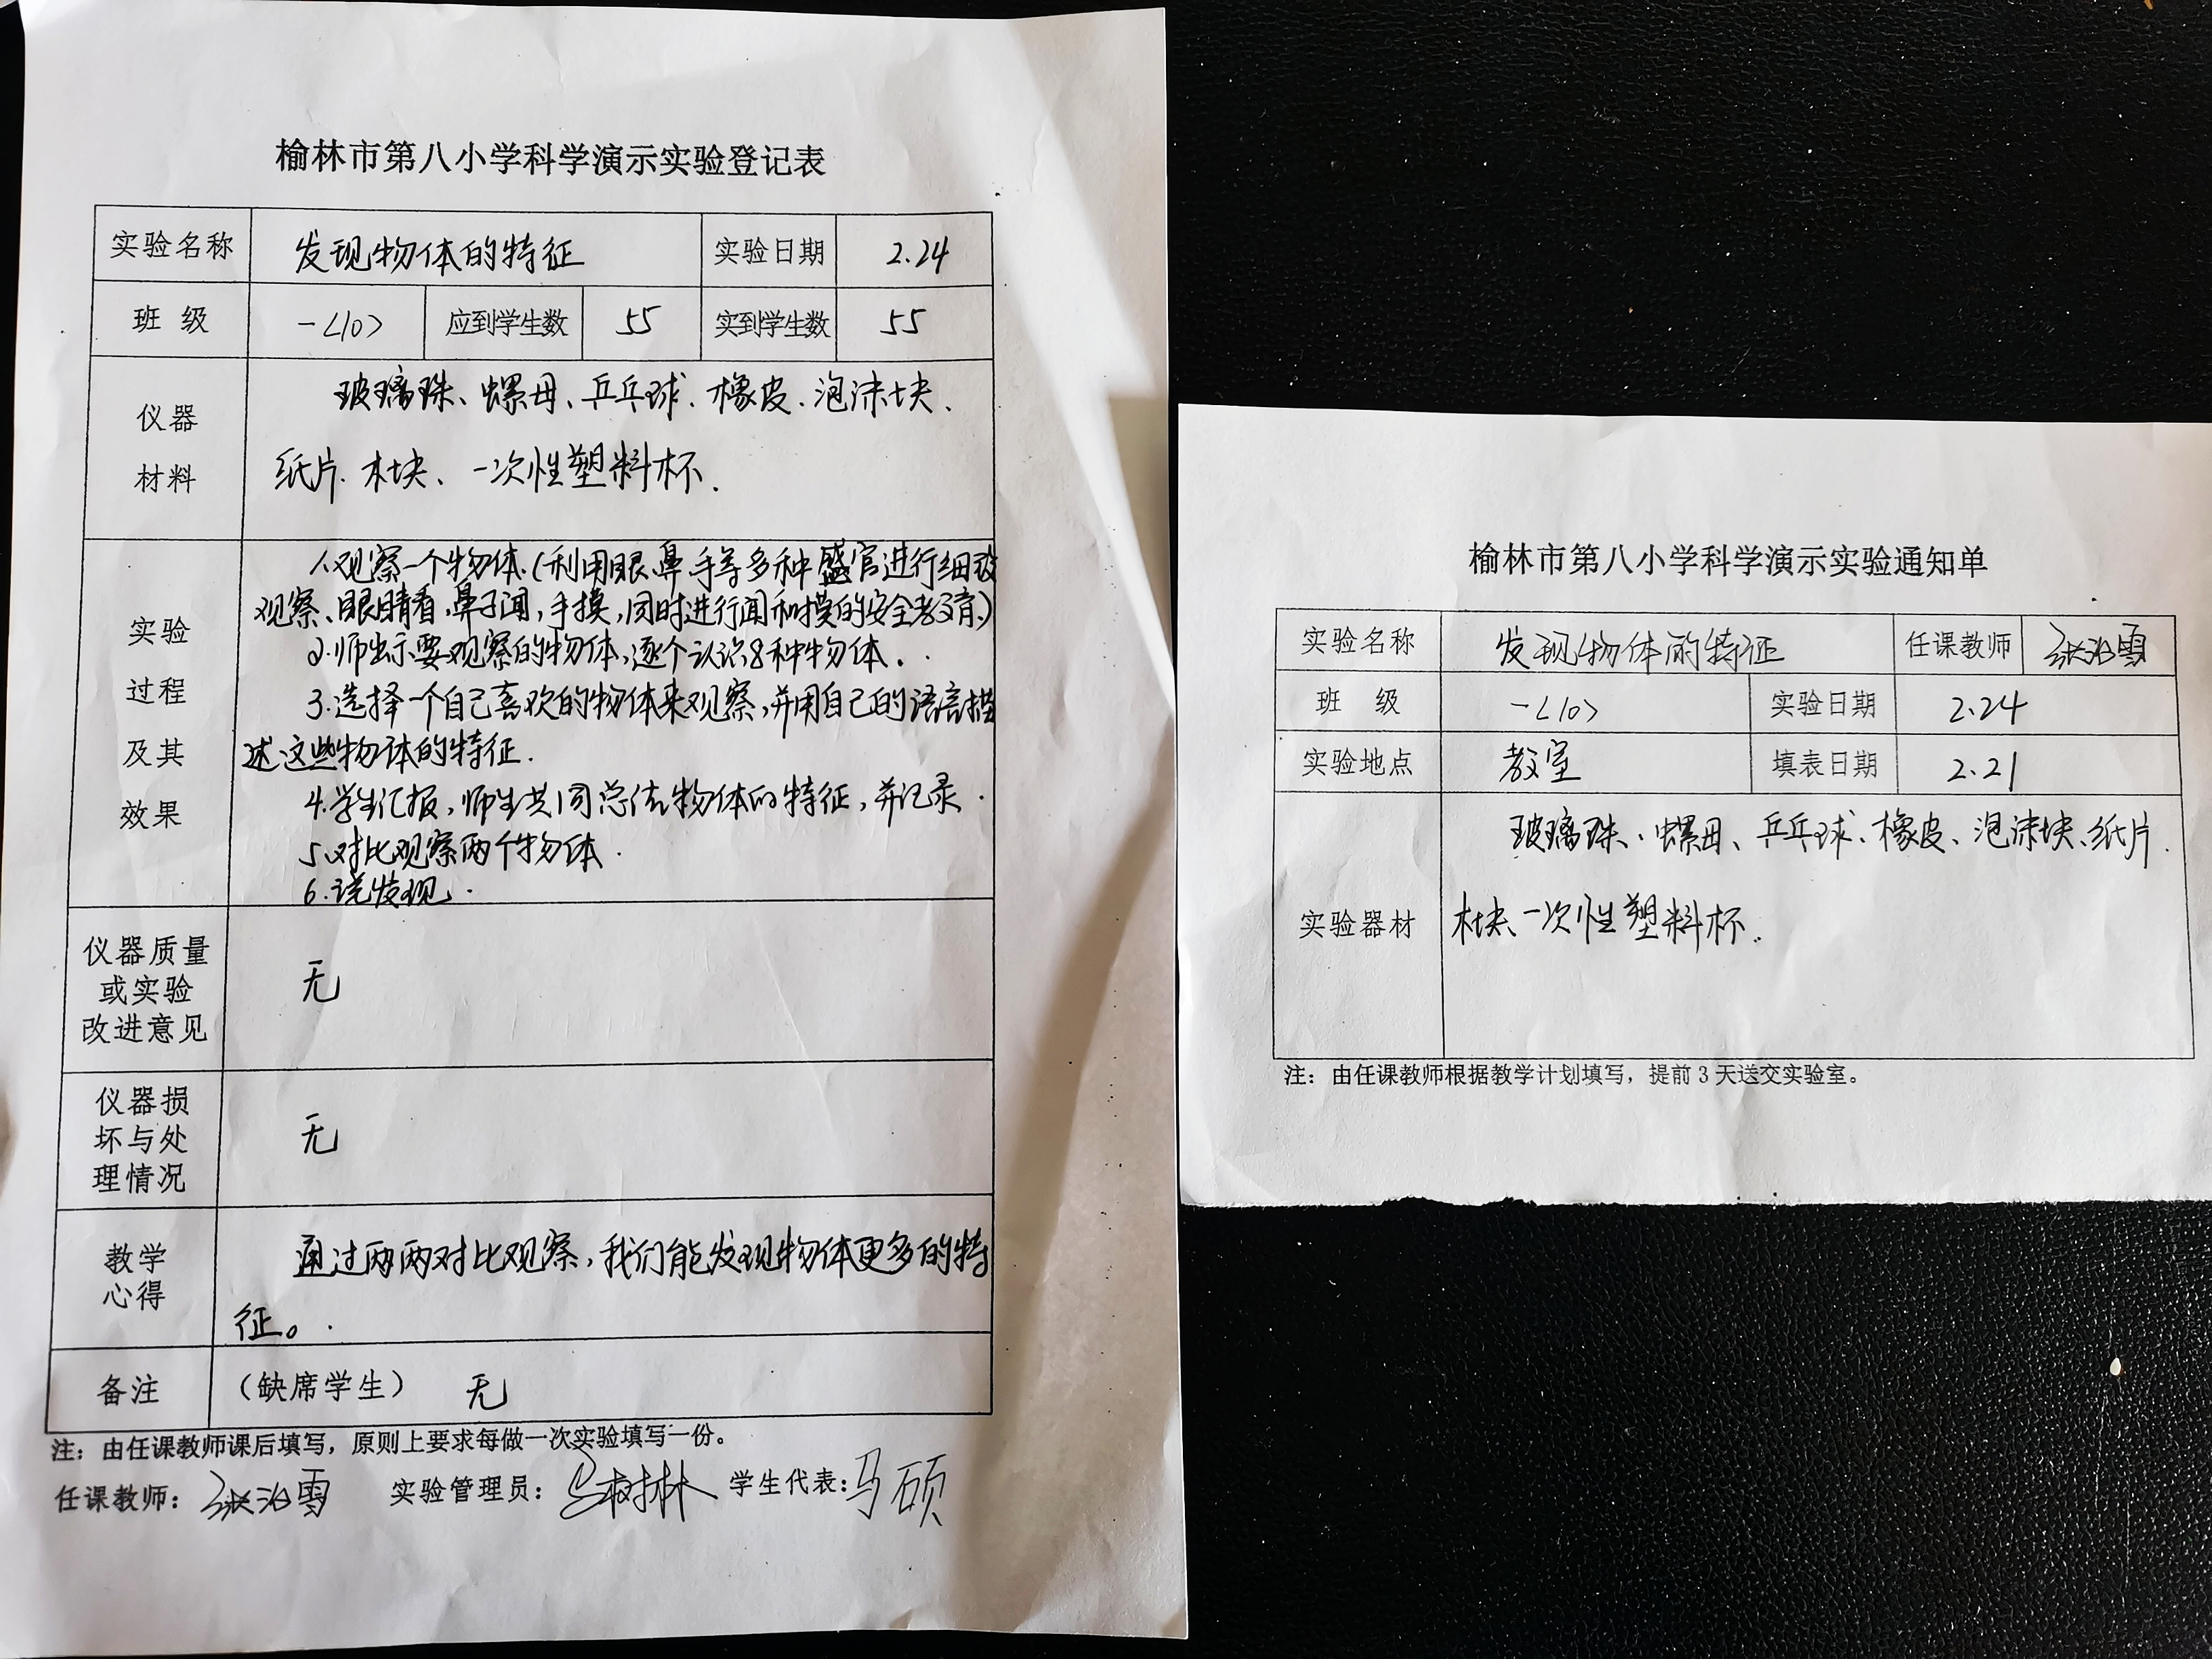 榆林市第八小学科学演示实验登记表
实验名称 发现物体的特征 实验日期 2.24
班 级 一<10> 应到学生数 55 实到学生数 55
仪器
材料
玻璃珠、螺母、乒乓球、橡皮、泡沫块、
纸片、木块、一次性塑料杯.
实验
过程
及其
效果
1.观察一个物体.(利用眼、鼻、手等多种感官进行细致
观察、眼睛看,鼻子闻,手摸,同时进行闻和摸的安全教育.)
2.师出示要观察的物体,逐个认识8种物体.
3.选择一个自己喜欢的物体来观察,并用自己的语言描
述这些物体的特征.
4.学生汇报,师生共同总结物体的特征,并记录.
5.对比观察两个物体.
6.说发现.
仪器质量
或实验
改进意见
无
仪器损
坏与处
理情况
无
教学
心得
通过两两对比观察,我们能发现物体更多的特
征。
备注 (缺席学生) 无
注：由任课教师课后填写，原则上要求每做一次实验填写一份。
任课教师： 实验管理员： 学生代表:马硕
榆林市第八小学科学演示实验通知单
实验名称 发现物体的特征 任课教师
班 级 一<10> 实验日期 2.24
实验地点 教室 填表日期 2.21
实验器材
玻璃珠、螺母、乒乓球、橡皮、泡沫块、纸片.
木块、一次性塑料杯.
注：由任课教师根据教学计划填写，提前3天送交实验室。